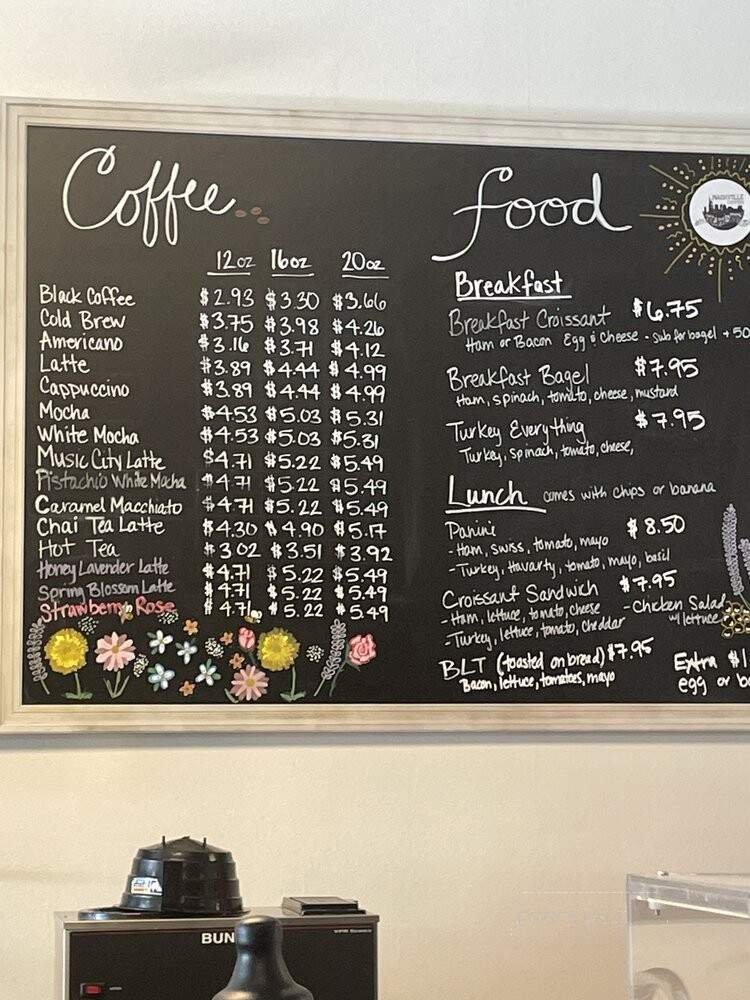 Coffee
12oz 16oz 20oz
Black Coffee $2.93 $3.30 $3.66
Cold Brew $3.75 $3.98 $4.26
Americano $3.16 $3.71 $4.12
Latte $3.89 $4.44 $4.99
Cappuccino $3.89 $4.44 $4.99
Mocha $4.53 $5.03 $5.31
White Mocha $4.53 $5.03 $5.31
Music City Latte $4.71 $5.22 $5.49
Pistachio White Mocha $4.71 $5.22 $5.49
Caramel Macchiato $4.71 $5.22 $5.49
Chai Tea Latte $4.30 $4.90 $5.17
Hot Tea $3.02 $3.51 $3.92
Honey Lavender Latte $4.71 $5.22 $5.49
Spring Blossom Latte $4.71 $5.22 $5.49
Strawberry Rose $4.71 $5.22 $5.49
food
NASHVILLE
Breakfast
Breakfast Croissant $6.75
Ham or Bacon Egg & Cheese - Sub for bagel + 50
Breakfast Bagel $7.95
Ham, spinach, tomato, cheese, mustard
Turkey Everything $7.95
Turkey, spinach, tomato, cheese,
Lunch comes with chips or banana
Panini $8.50
- Ham, swiss, tomato, mayo
- Turkey, Havarty, tomato, mayo, basil
Croissant Sandwich $7.95
- Ham, lettuce, tomato, cheese - Chicken Salad
w/ lettuce
- Turkey, lettuce, tomato, cheddar
BLT (toasted on bread) $7.95
Bacon, lettuce, tomatoes, mayo
Extra $1
egg or ba
BUN